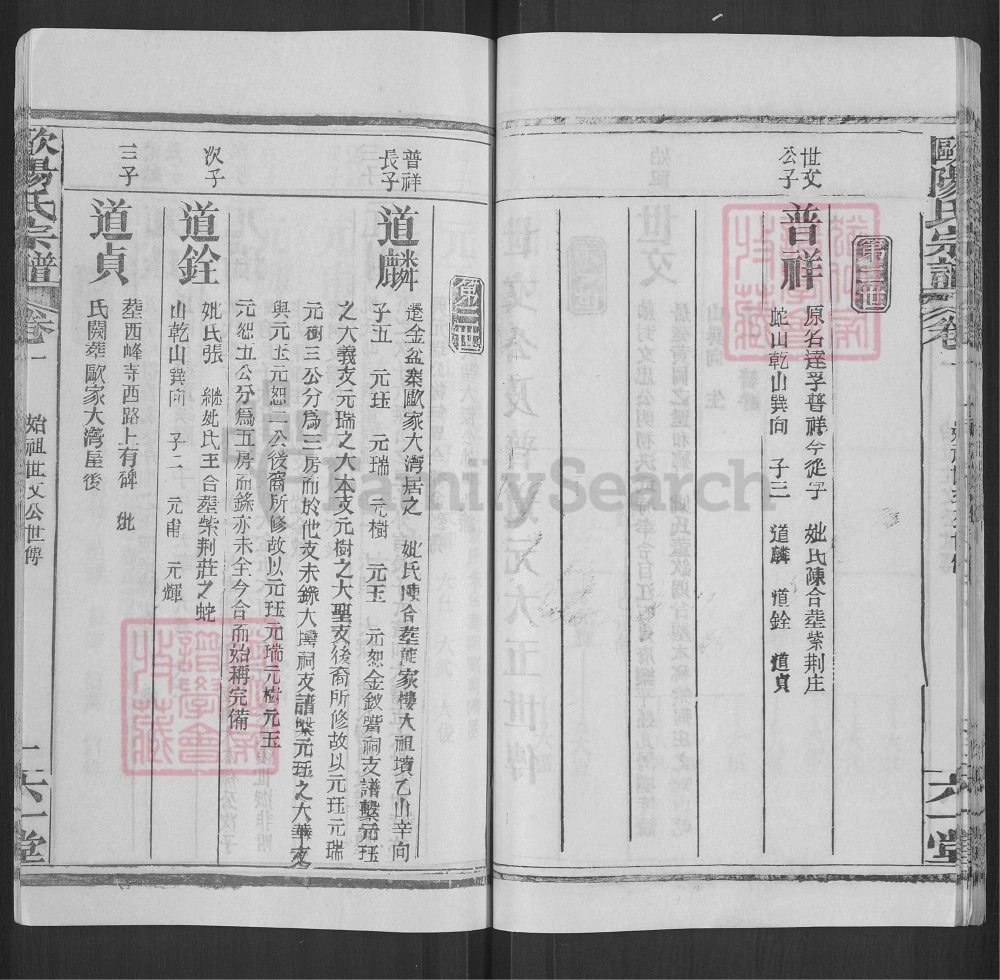 歐陽氏宗譜
卷一
六一堂
第三世
世文
公子
普祥
原名達孚普祥今從子 妣氏陳合塟紫荆庄
蛇山乾山巽向 子三 道麟 道銓 道貞
第四世
普祥
長子
道麟
遷金盆案歐家大湾居之 妣氏陳合塟熊家樓大祖墳乙山辛向
子五 元珏 元瑞 元樹 元玉 元恕金釵嘴祠支譜槩元珏
之大義支元瑞之大本支元樹之大聖支後裔所修故以元珏元瑞
元樹三公分爲三房而於他支未錄大灣祠支譜槩元珏之大華支
與元玉元恕二公後裔所修故以元珏元瑞元樹元玉
元恕五公分爲五房而錄亦未全今合而始稱完備
次子
道銓
妣氏張 繼妣氏王合塟柴荆莊之蛇
山乾山巽向 子二 元甫 元輝
三子
道貞
塟西峰寺西路上有碑 妣
氏闕塟歐家大湾屋後
歐陽氏宗譜
卷一
始祖世文公世傳
二
六一堂
© FamilySearch